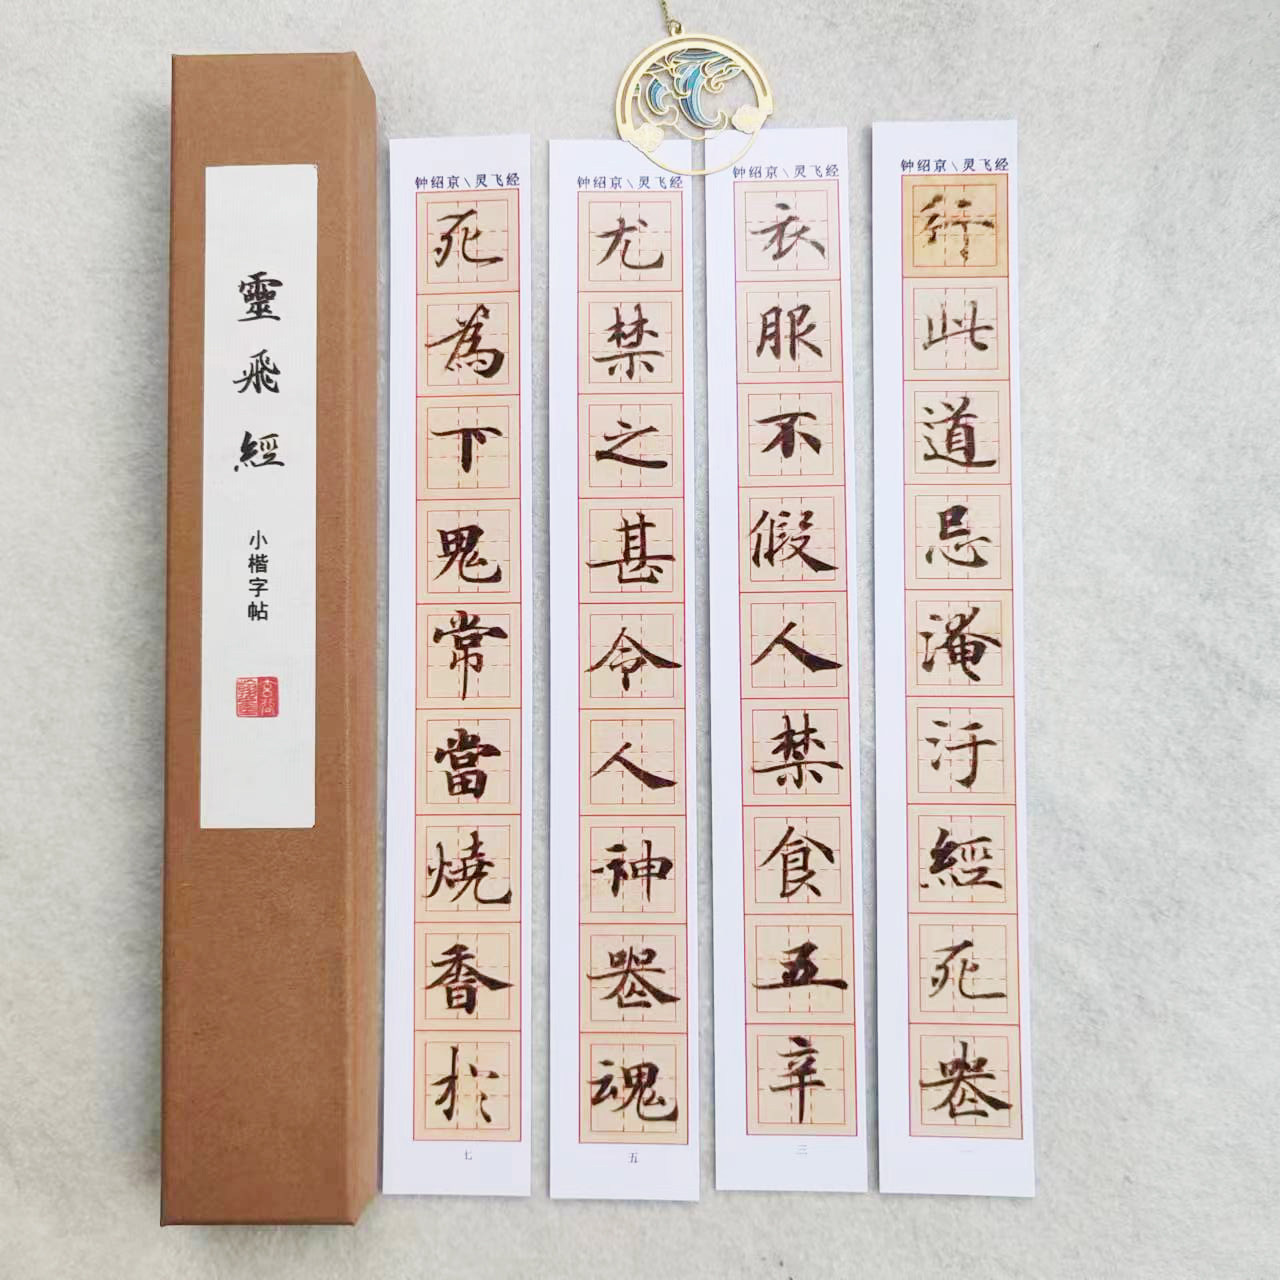 靈飛經
小楷字帖
钟绍京\灵飞经
行此道忌淹汙經死喪
一
钟绍京\灵飞经
衣服不假人禁食五辛
三
钟绍京\灵飞经
尤禁之甚令人神喪魂
五
钟绍京\灵飞经
死為下鬼常當燒香於
七